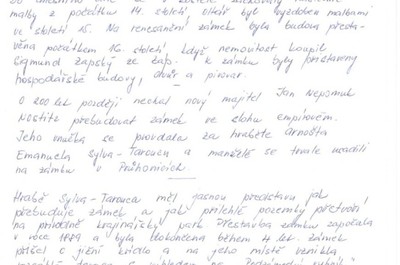 malby z počátku 14. století. Oltář byl vyzdoben malbami
ve století 15. Na renesanční zámek byla budova přesta-
věna počátkem 16. století, když nemovitost koupil
Zigmund Zapský ze Zap. K zámku byly přistaveny
hospodářské budovy, dvůr a pivovar.
O 200 let později nechal nový majitel Jan Nepomuk
Nostitz přebudovat zámek ve slohu empírovém.
Jeho vnučka se provdala za hraběte Arnošta
Emanuela Sylva-Tarouca a manželé se trvale usadili
na zámku v Průhonicích.
Hrabě Sylva-Tarouca měl jasnou představu jak
přebuduje zámek a jak přilehlé pozemky přetvoří
na přírodně krajinářský park. Přestavba zámku započala
v roce 1889 a byla dokončena během 4 let. Zámek
přišel o jižní křídlo a na jeho místě vznikla